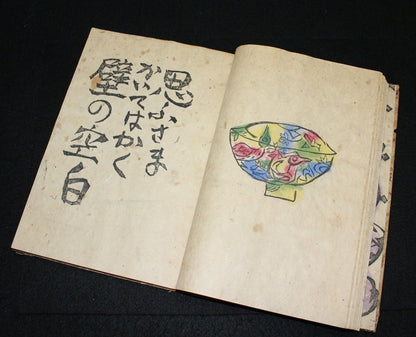 思ふさま
かいてはかく
壁の空白